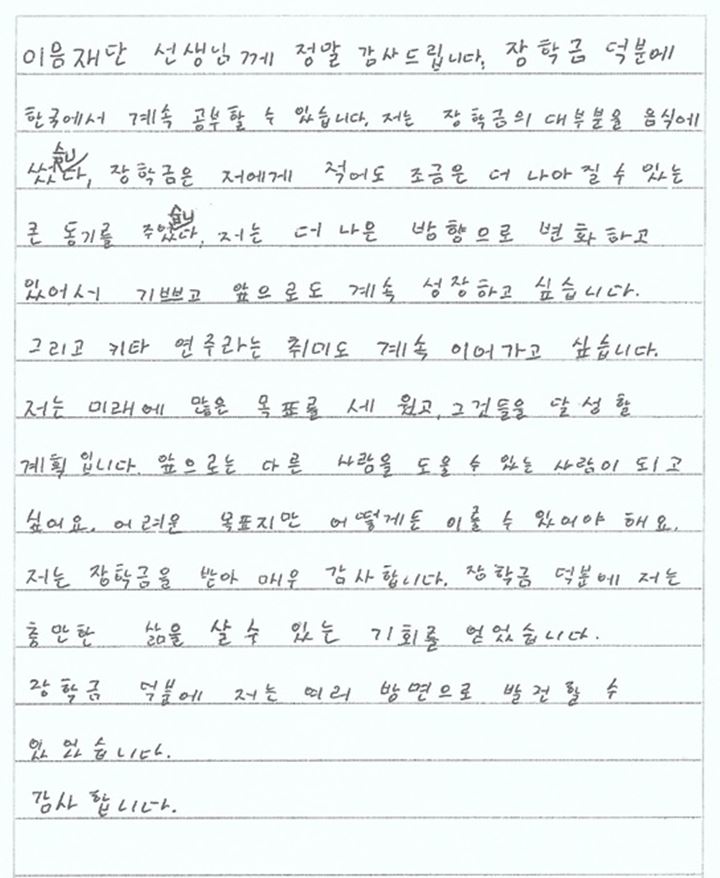 이음재단 선생님께 정말 감사드립니다. 장학금 덕분에
한국에서 계속 공부할 수 있습니다. 저는 장학금의 대부분을 음식에
썼습니다. 장학금은 저에게 적어도 조금은 더 나아질 수 있는
큰 동기를 주었습니다. 저는 더 나은 방향으로 변화하고
있어서 기쁘고 앞으로도 계속 성장하고 싶습니다.
그리고 키타 연주라는 취미도 계속 이어가고 싶습니다.
저는 미래에 많은 목표를 세웠고, 그것들을 달성할
계획입니다. 앞으로는 다른 사람을 도울 수 있는 사람이 되고
싶어요. 어려운 목표지만 어떻게든 이룰 수 있어야 해요.
저는 장학금을 받아 매우 감사합니다. 장학금 덕분에 저는
충만한 삶을 살 수 있는 기회를 얻었습니다.
장학금 덕분에 저는 여러 방면으로 발전할 수
있었습니다.
감사합니다.